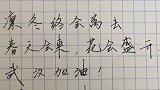 凛冬终会离去
春天会来，花会盛开
武汉加油！